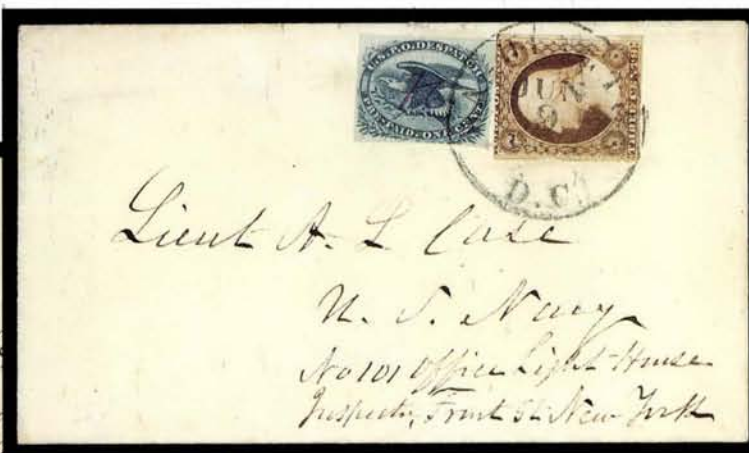 U.S.P.O. DESPATCH
PRE-PAID. ONE CENT
JUN
9
D.C.
Lieut A. L Case
U. S. Navy
No 101 Office Light-House
Inspector, Front St New York